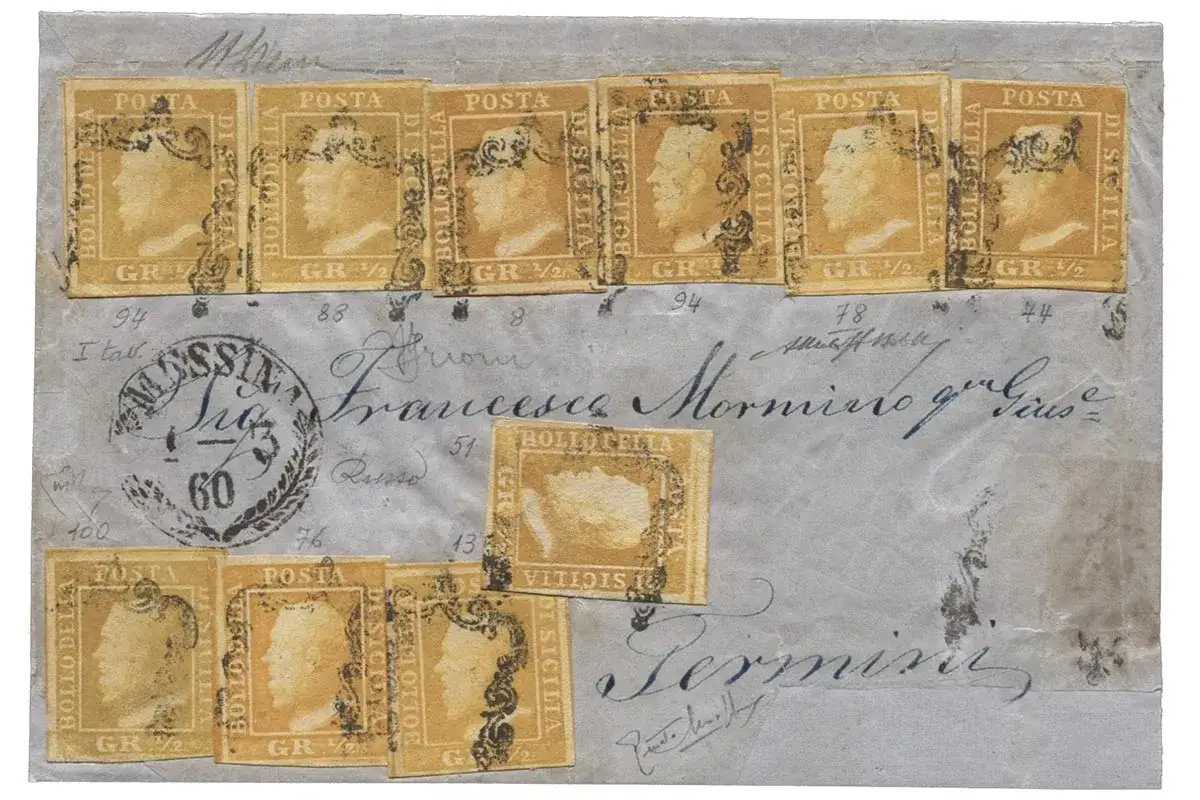 POSTA BOLLO DELLA DI SICILIA GR ½
POSTA BOLLO DELLA DI SICILIA GR ½
POSTA BOLLO DELLA DI SICILIA GR ½
POSTA BOLLO DELLA DI SICILIA GR
POSTA BOLLO DELLA DI SICILIA GR ½
POSTA BOLLO DELLA DI SICILIA GR ½
94 88 8 94 78 44
I tav.
MESSINA
1 - 3
60
Sig Francesco Mormino qm Giuse
51
Russo
BOLLO DELLA DI SICILIA GR
100 76 13
POSTA BOLLO DELLA DI SICILIA GR ½
POSTA BOLLO DELLA DI SICILIA GR ½
POSTA BOLLO DELLA DI SICILIA GR ½
Termini